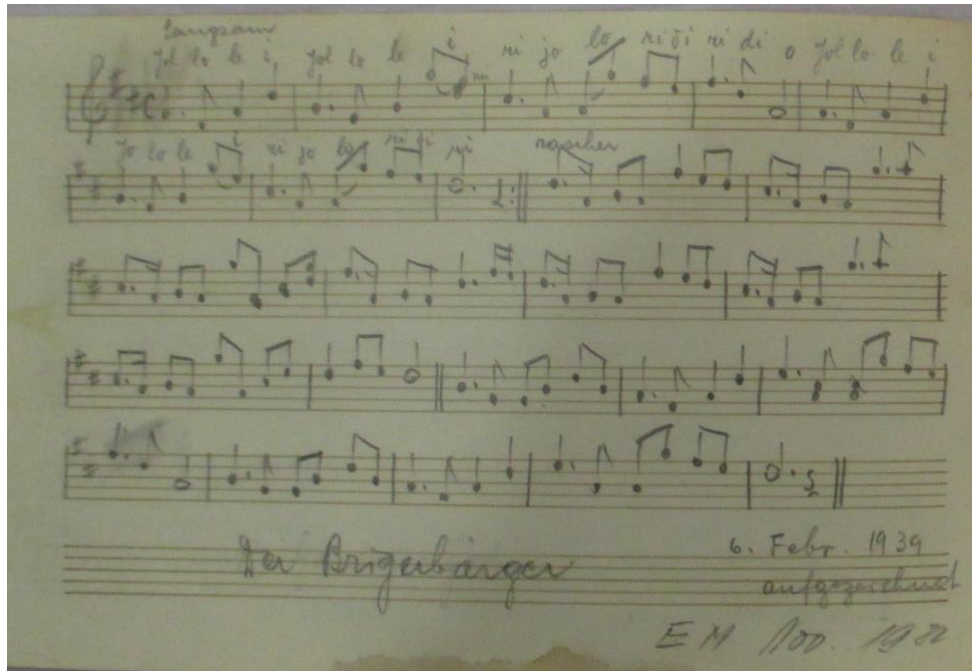 Langsam
Jol lo le i Jol lo le i ri jo lo ri di ri di o Jol lo le i
Jo lo le i ri jo lo ri di ri rascher
Der Brigerbärger
6. Febr. 1939
aufgezeichnet
E M